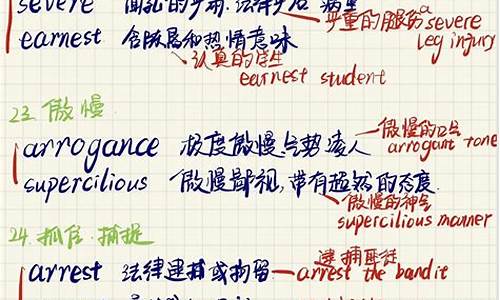 severe
严重的腿伤 a severe
leg injury
earnest 含
和热情意味
认真的学生
earnest student
23. 傲慢
arrogance 极度傲慢,气势凌人
傲慢的口气
arrogant tone
supercilious 傲慢鄙视,带有超然的态度.
傲慢的神气
supercilious manner
24. 抓住.捕捉
arrest 法律逮捕或拘留
逮捕匪徒
arrest the bandit